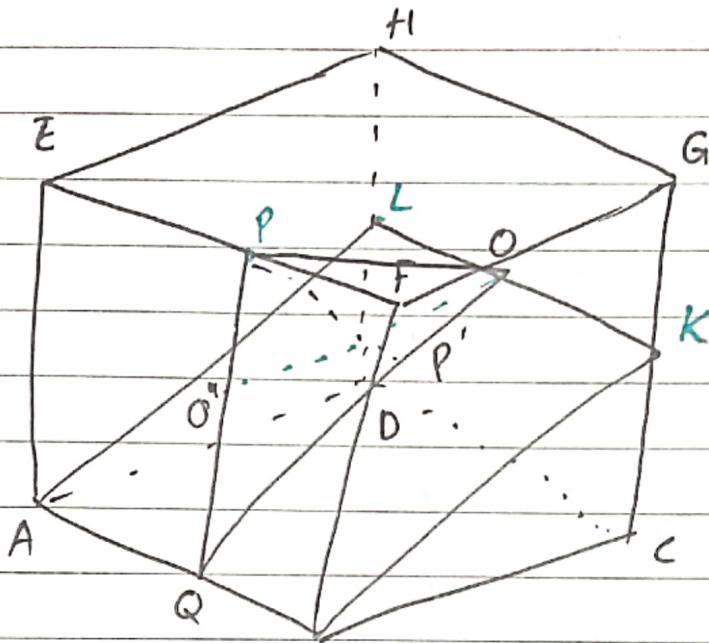 H
E
G
L
P
O
F
K
P'
O"
D
A
C
Q